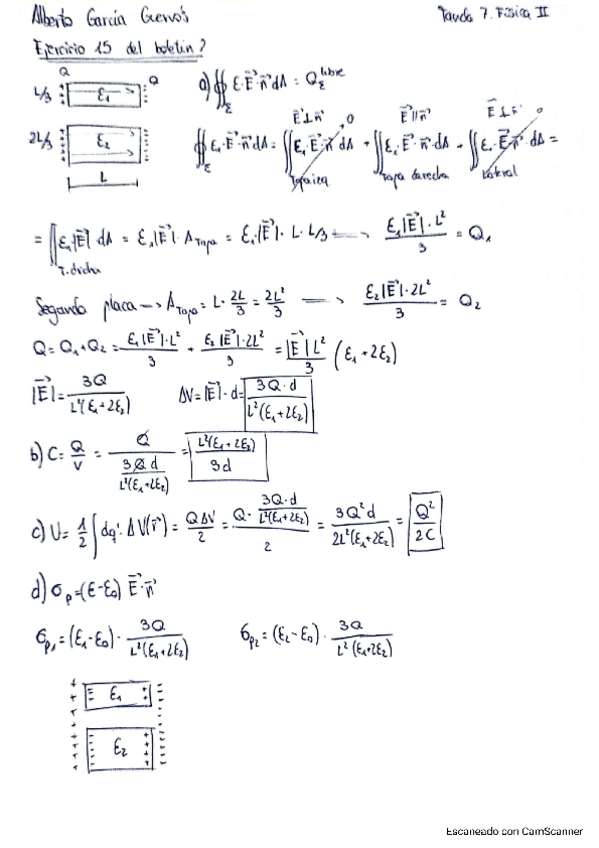 Alberto García Gervós
Tanda 7. Física II
Ejercicio 15 del boletín 7
Q Q
L/3 ε₁
2L/3 ε₂
L
a) ∯_Σ ε·E⃗·n⃗ dA = Q_Σ^libre
E⃗⊥n⃗ 0 E⃗∥n⃗ E⃗⊥n⃗ 0
∯_Σ ε₁·E⃗·n⃗ dA = ∬ ε₁·E⃗·n⃗ dA + ∬ ε₁·E⃗·n⃗ dA + ∬ ε₁·E⃗·n⃗ dA =
Tapa izq Tapa derecha Lateral
= ∬ ε₁|E⃗| dA = ε₁|E⃗|·A_Tapa = ε₁·|E⃗|·L·L/3 → ε₁|E⃗|·L²/3 = Q₁
T. drcha
Segunda placa → A_Tapa = L·2L/3 = 2L²/3 → ε₂|E⃗|·2L²/3 = Q₂
Q = Q₁+Q₂ = ε₁|E⃗|·L²/3 + ε₂|E⃗|·2L²/3 = |E⃗|L²/3 (ε₁+2ε₂)
|E⃗| = 3Q/L²(ε₁+2ε₂) ΔV = |E⃗|·d = 3Q·d/L²(ε₁+2ε₂)
b) C = Q/V = Q/(3Qd/L²(ε₁+2ε₂)) = L²(ε₁+2ε₂)/3d
c) U = 1/2 ∫dq'·ΔV(r⃗) = QΔV/2 = Q·(3Q·d/L²(ε₁+2ε₂))/2 = 3Q²d/2L²(ε₁+2ε₂) = Q²/2C
d) σp = (ε-ε₀) E⃗·n⃗
σp₁ = (ε₁-ε₀)·3Q/L²(ε₁+2ε₂) σp₂ = (ε₂-ε₀)·3Q/L²(ε₁+2ε₂)
ε₁
ε₂
Escaneado con CamScanner